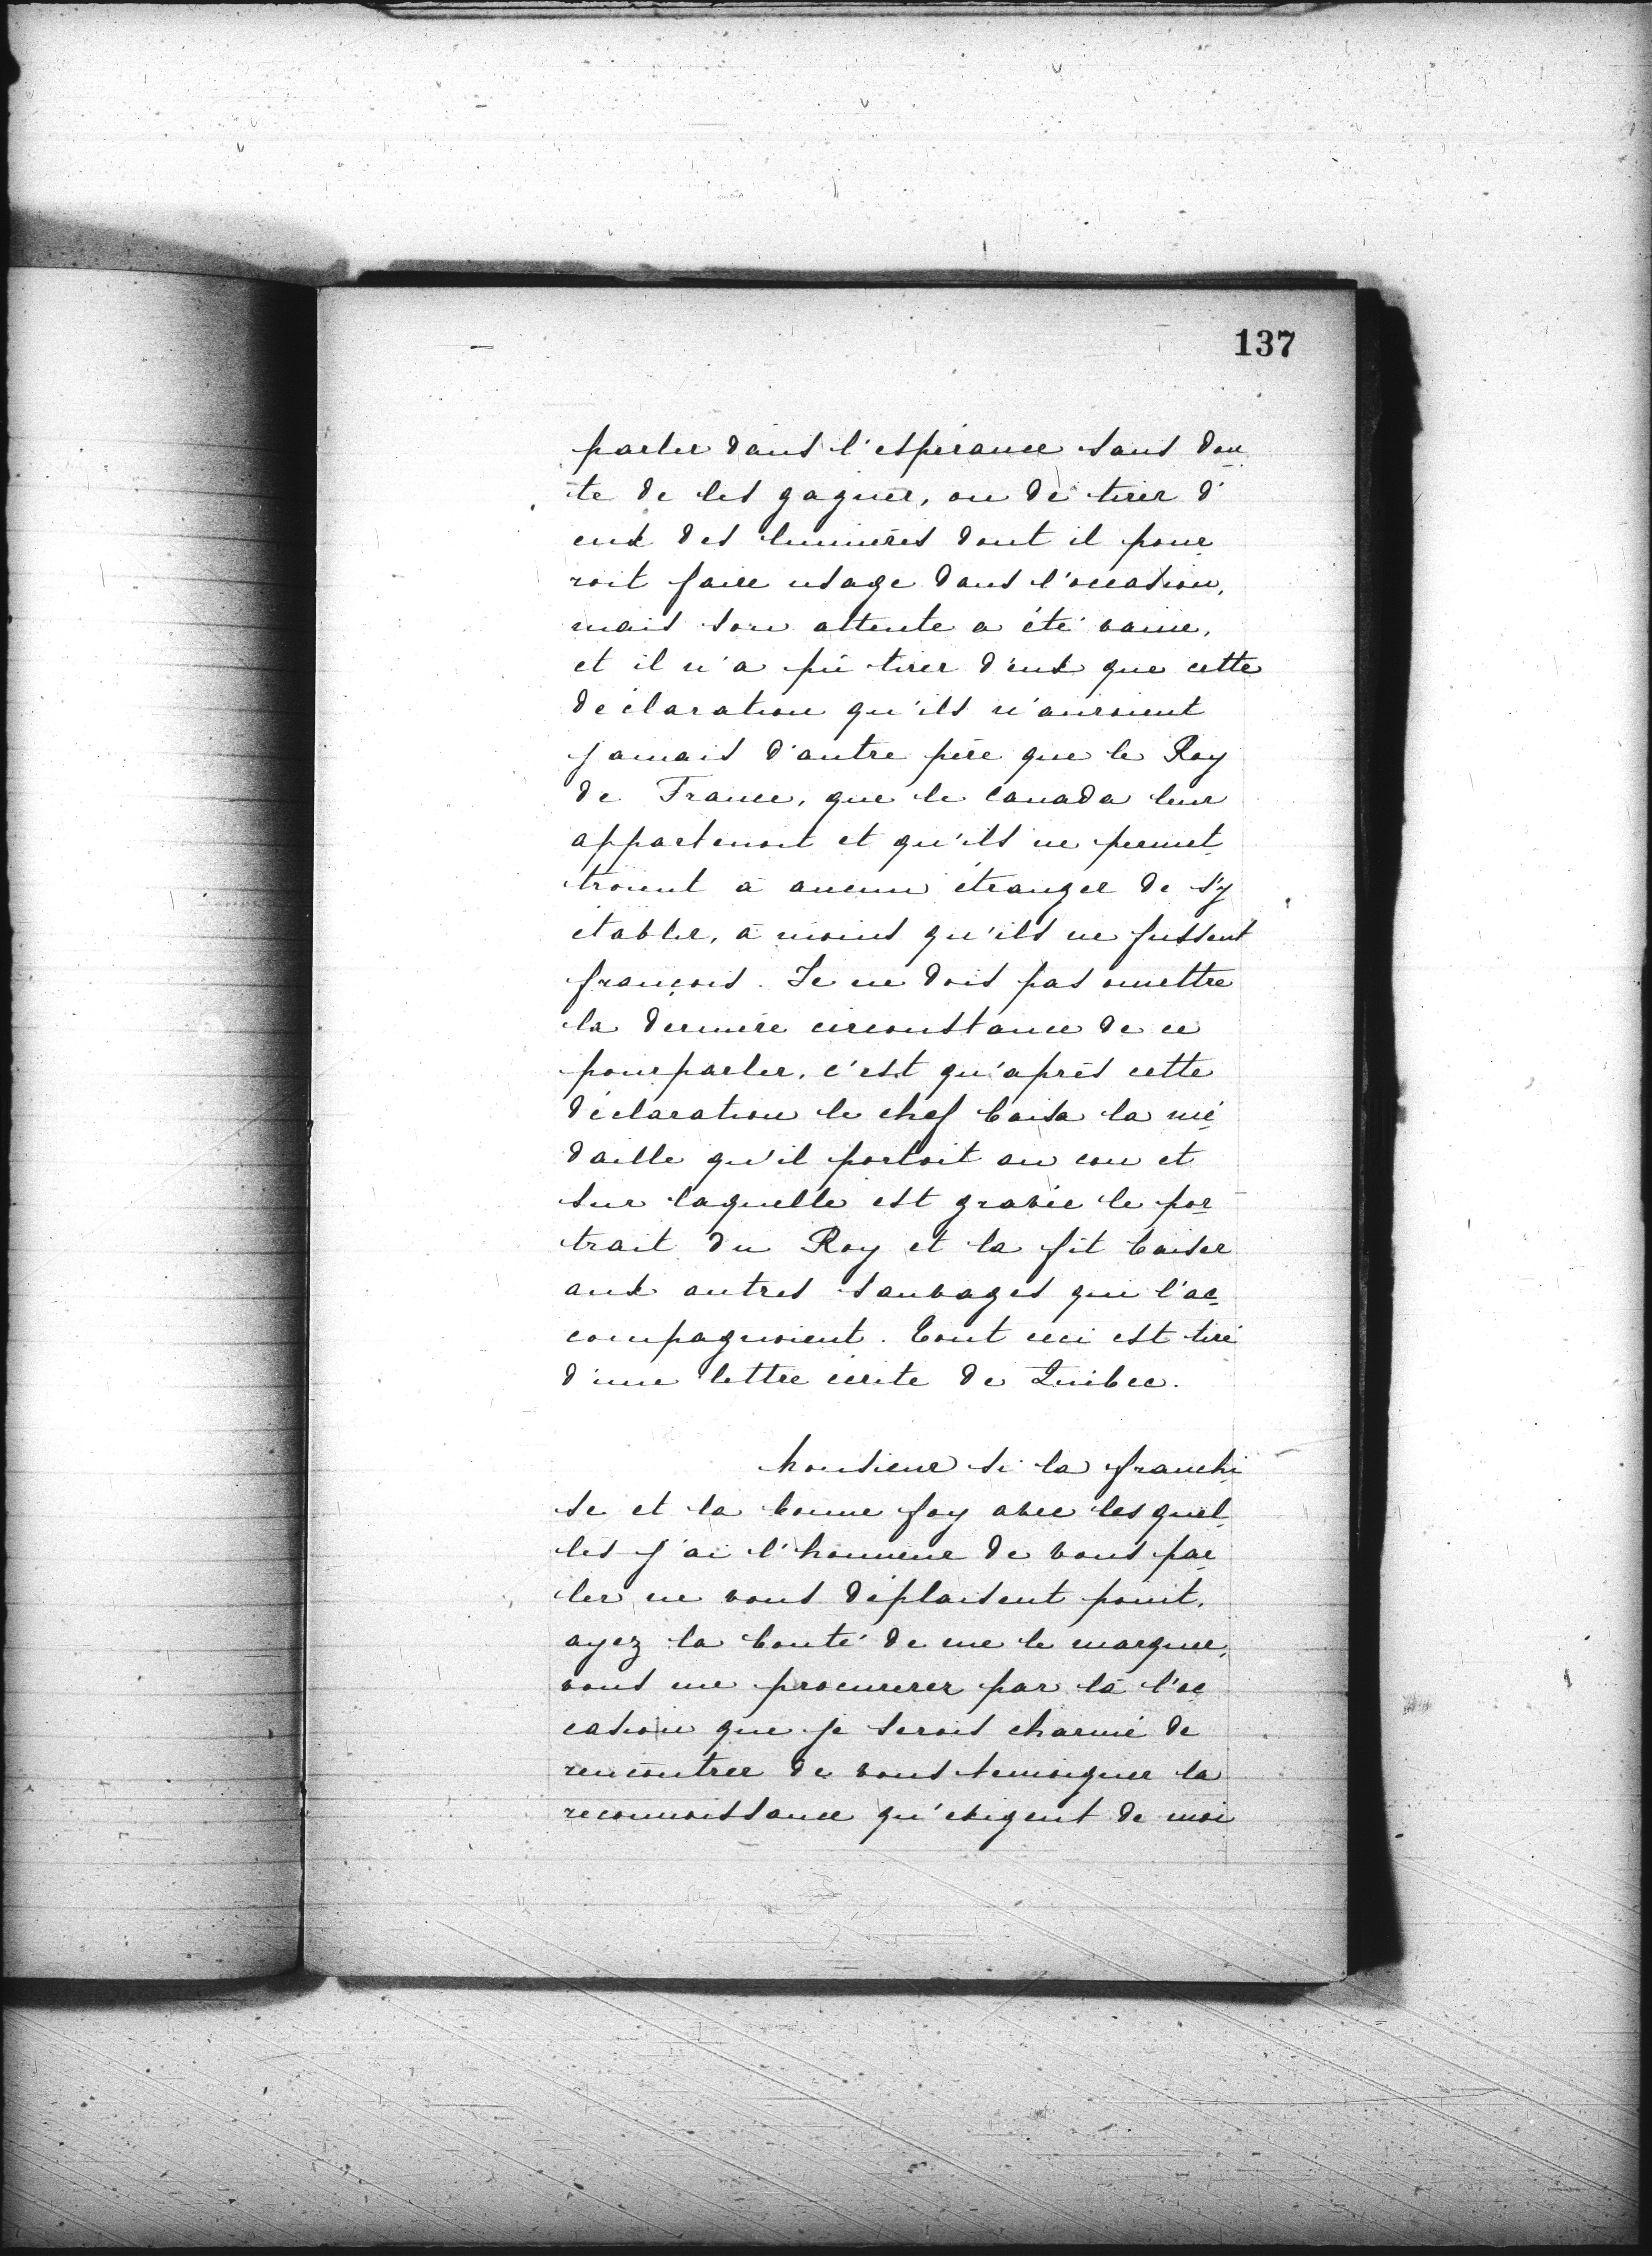 137
parler dans l'espérance sans dou
te de les gagner, ou de tirer d'
eux des lumières dont il pour
roit faire usage dans l'occasion,
mais son attente a été vaine,
et il n'a pû tirer d'eux que cette
déclaration qu'ils n'auroient
jamais d'autre père que le Roy
de France, que le Canada leur
appartenoit et qu'ils ne permet
troient à aucun étranger de s'y
établir, à moins qu'ils ne fussent
françois. Je ne dois pas omettre
la dernière circonstance de ce
pourparler, c'est qu'après cette
déclaration le chef baisa la mé
daille qu'il portoit au cou et
sur laquelle est gravée le por
trait du Roy et la fit baiser
aux autres sauvages qui l'ac
compagnoient. Tout ceci est tiré
d'une lettre écrite de Québec.
Monsieur si la franchi
se et la bonne foy avec lesquel
les j'ai l'honneur de vous par
ler ne vous déplaisent point,
ayez la bonté de me le marquer,
vous me procurerez par là l'oc
casion que je serois charmé de
rencontrer de vous temoigner la
reconnoissance qu'exigent de moi